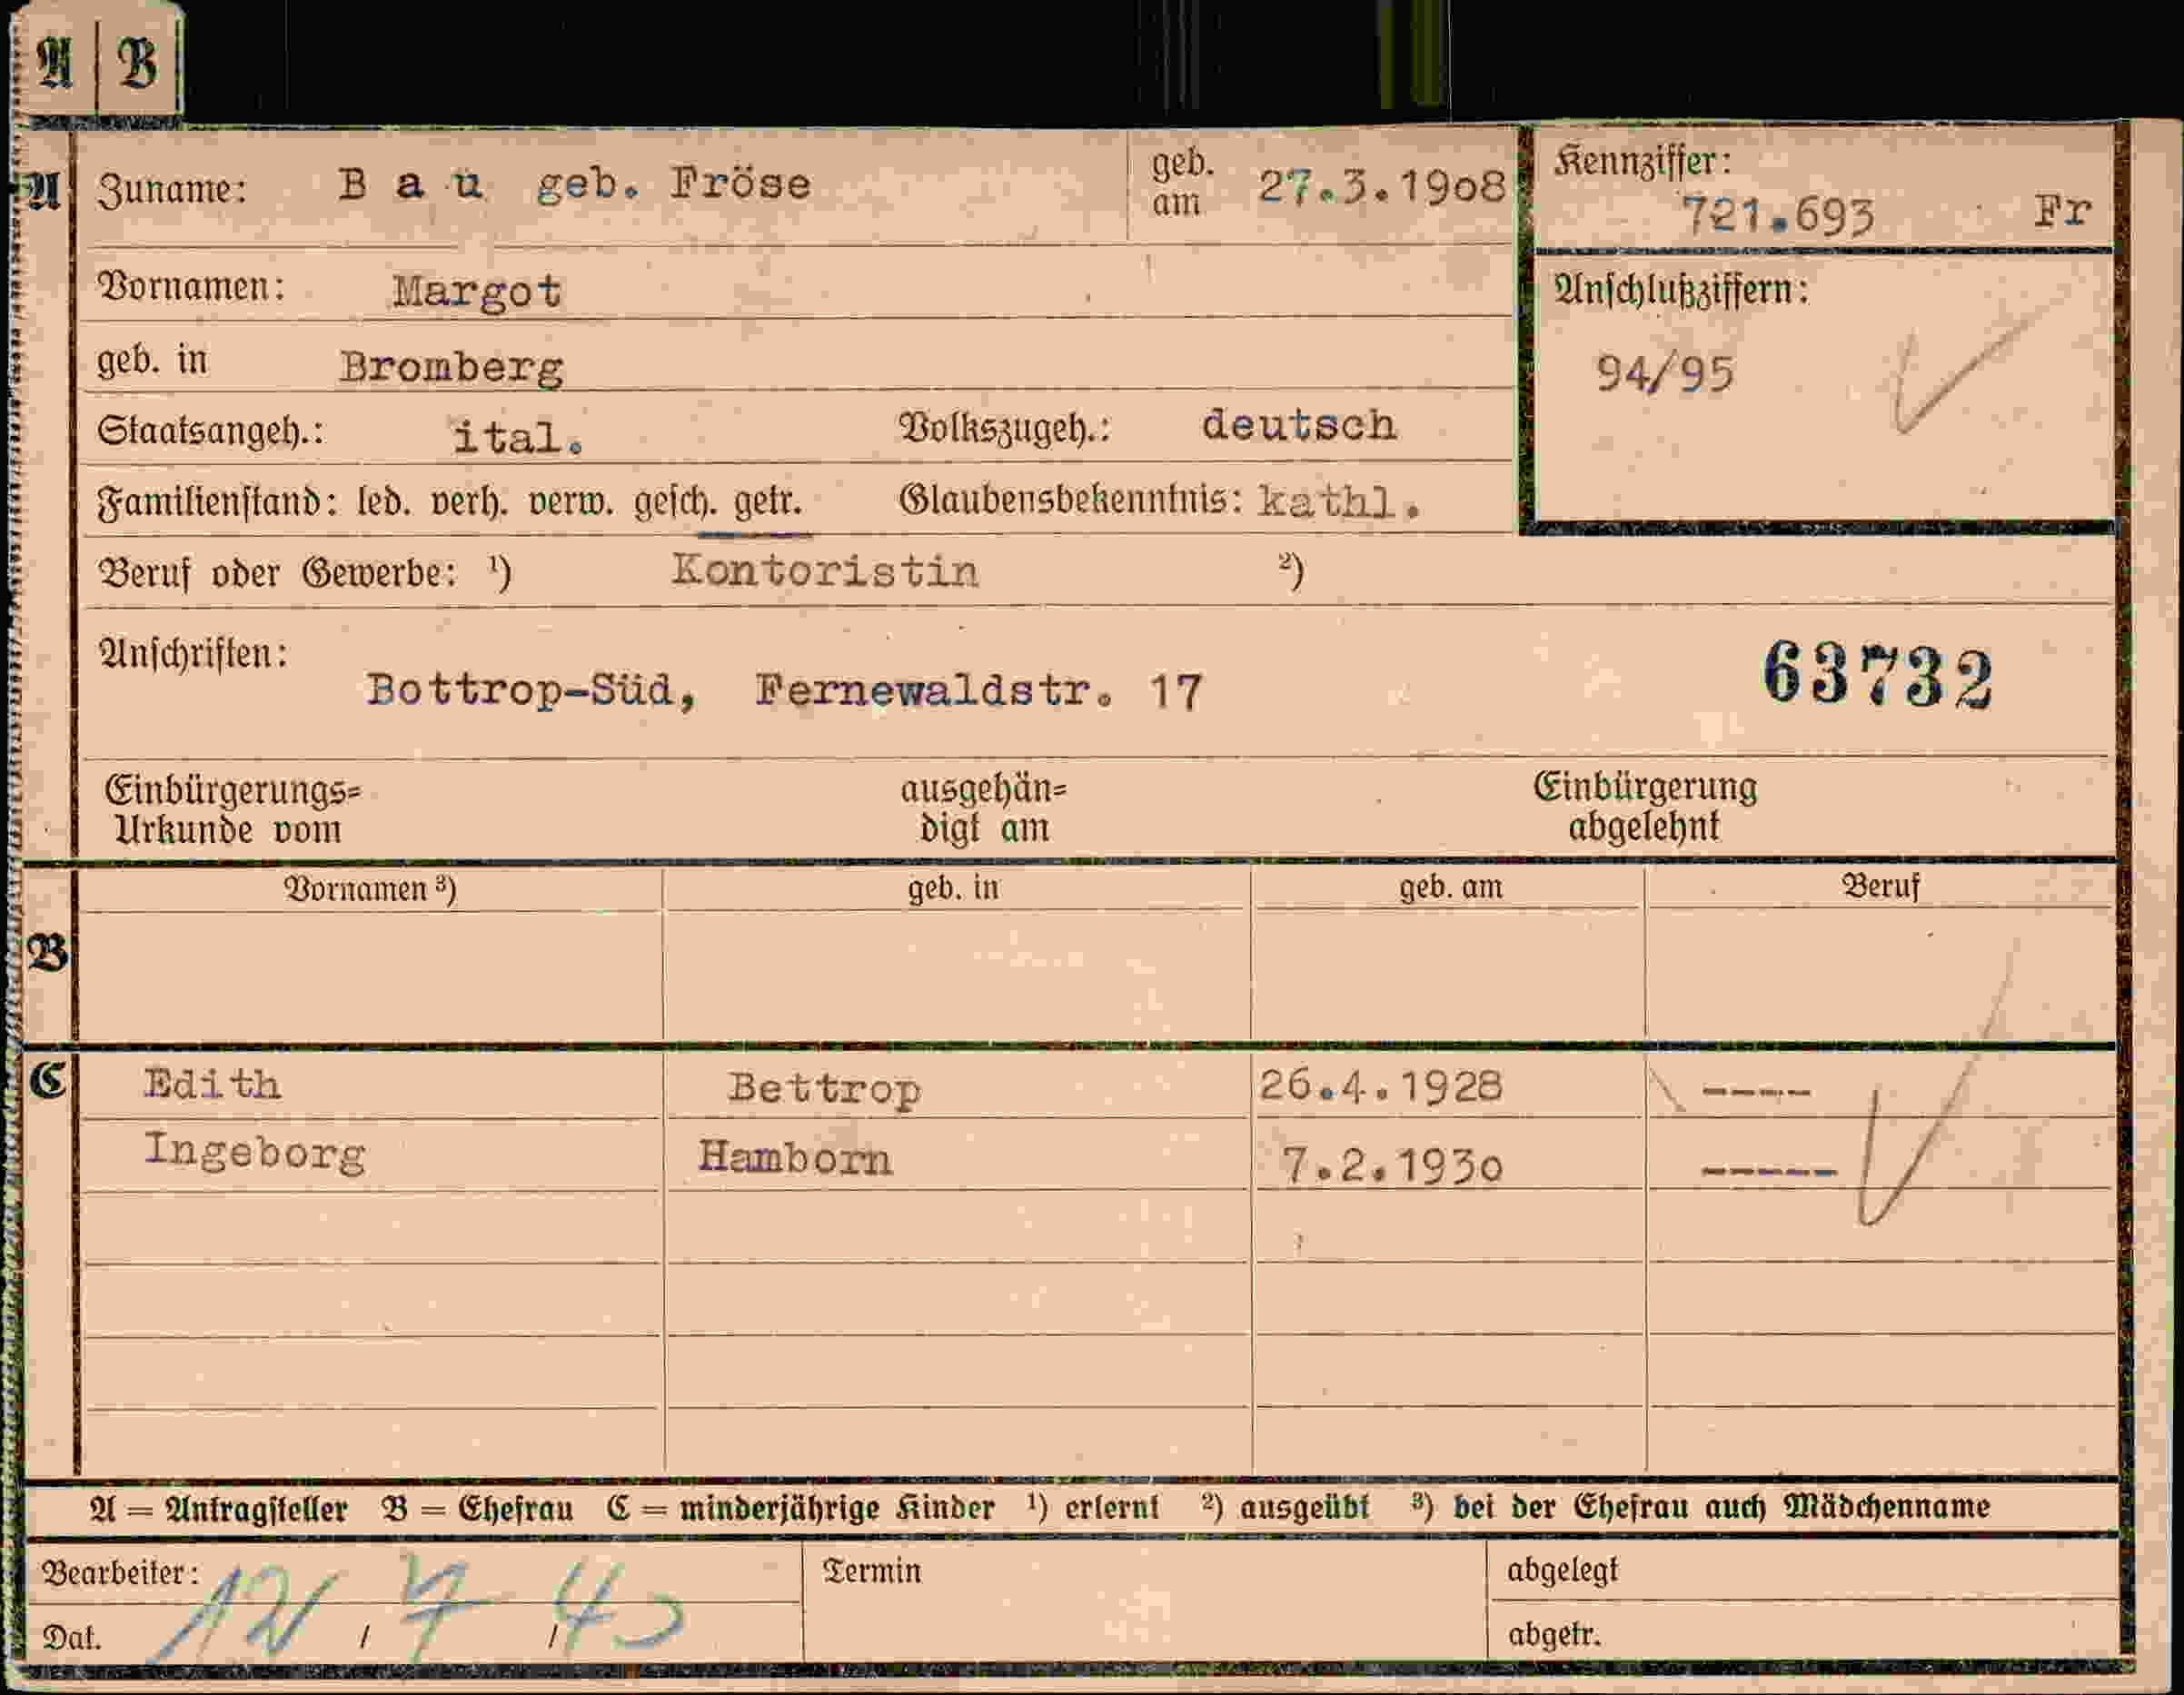 A | B
A Zuname: B a u geb. Fröse geb. am 27.3.1908 Kennziffer:
721.693 Fr
Vornamen: Margot Anschlußziffern:
geb. in Bromberg 94/95
Staatsangeh.: ital. Volkszugeh.: deutsch
Familienstand: led. verh. verw. gesch. getr. Glaubensbekenntnis: kathl.
Beruf oder Gewerbe: ¹) Kontoristin ²)
Anschriften: 63732
Bottrop-Süd, Fernewaldstr. 17
Einbürgerungs= ausgehän= Einbürgerung
Urkunde vom digt am abgelehnt
Vornamen ³) geb. in geb. am Beruf
B
C Edith Bettrop 26.4.1928 -----
Ingeborg Hamborn 7.2.1930 -----
A = Antragsteller B = Ehefrau C = minderjährige Kinder ¹) erlernt ²) ausgeübt ³) bei der Ehefrau auch Mädchenname
Bearbeiter: Termin abgelegt
Dat. 12 / 7 / 4 abgetr.